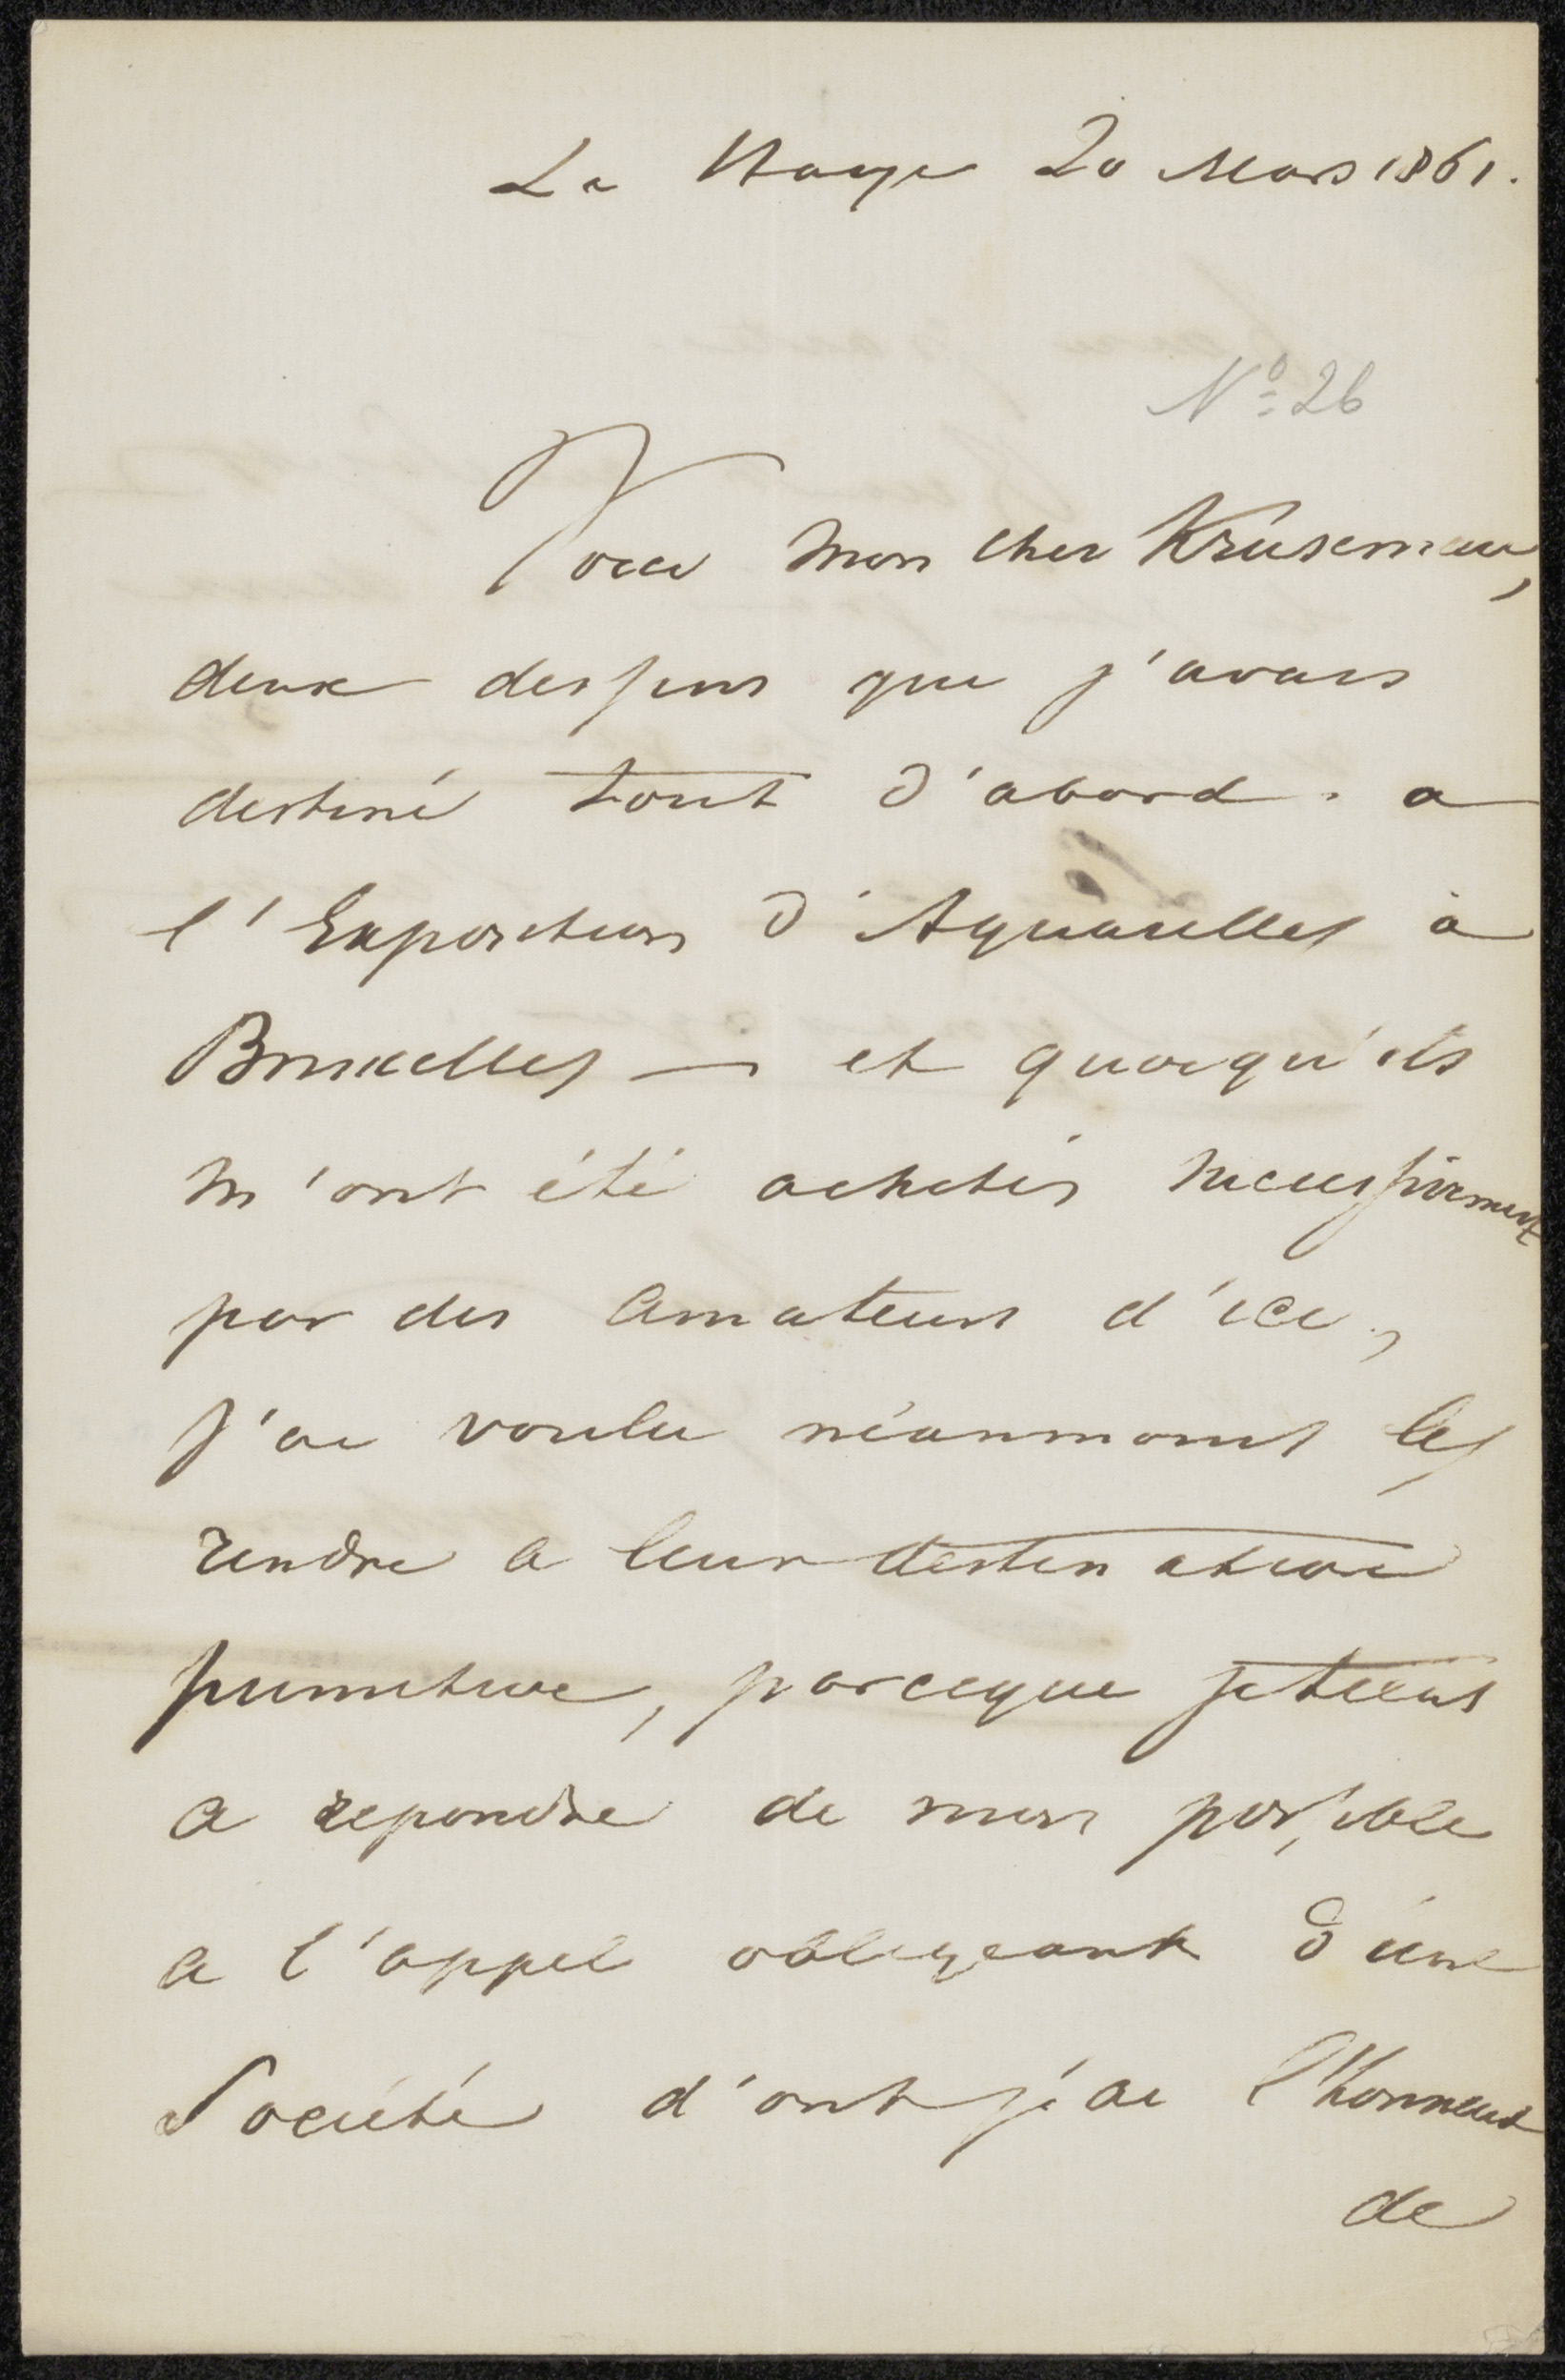 La Haye 20 Mars 1861.
Nº 26
Voici mon cher Kruseman,
deux dessins que j'avais
destiné tout d'abord a
l'Exposition d'Aquarelles à
Bruxelles — et quoiqu'ils
m'ont été achetés successivement
par des amateurs d'ici,
j'ai voulu néanmoins les
rendre a leur destination
primitive, parceque je tiens
a repondre de mon possible
a l'appel obligeant d'une
Société d'ont j'ai l'honneur
de